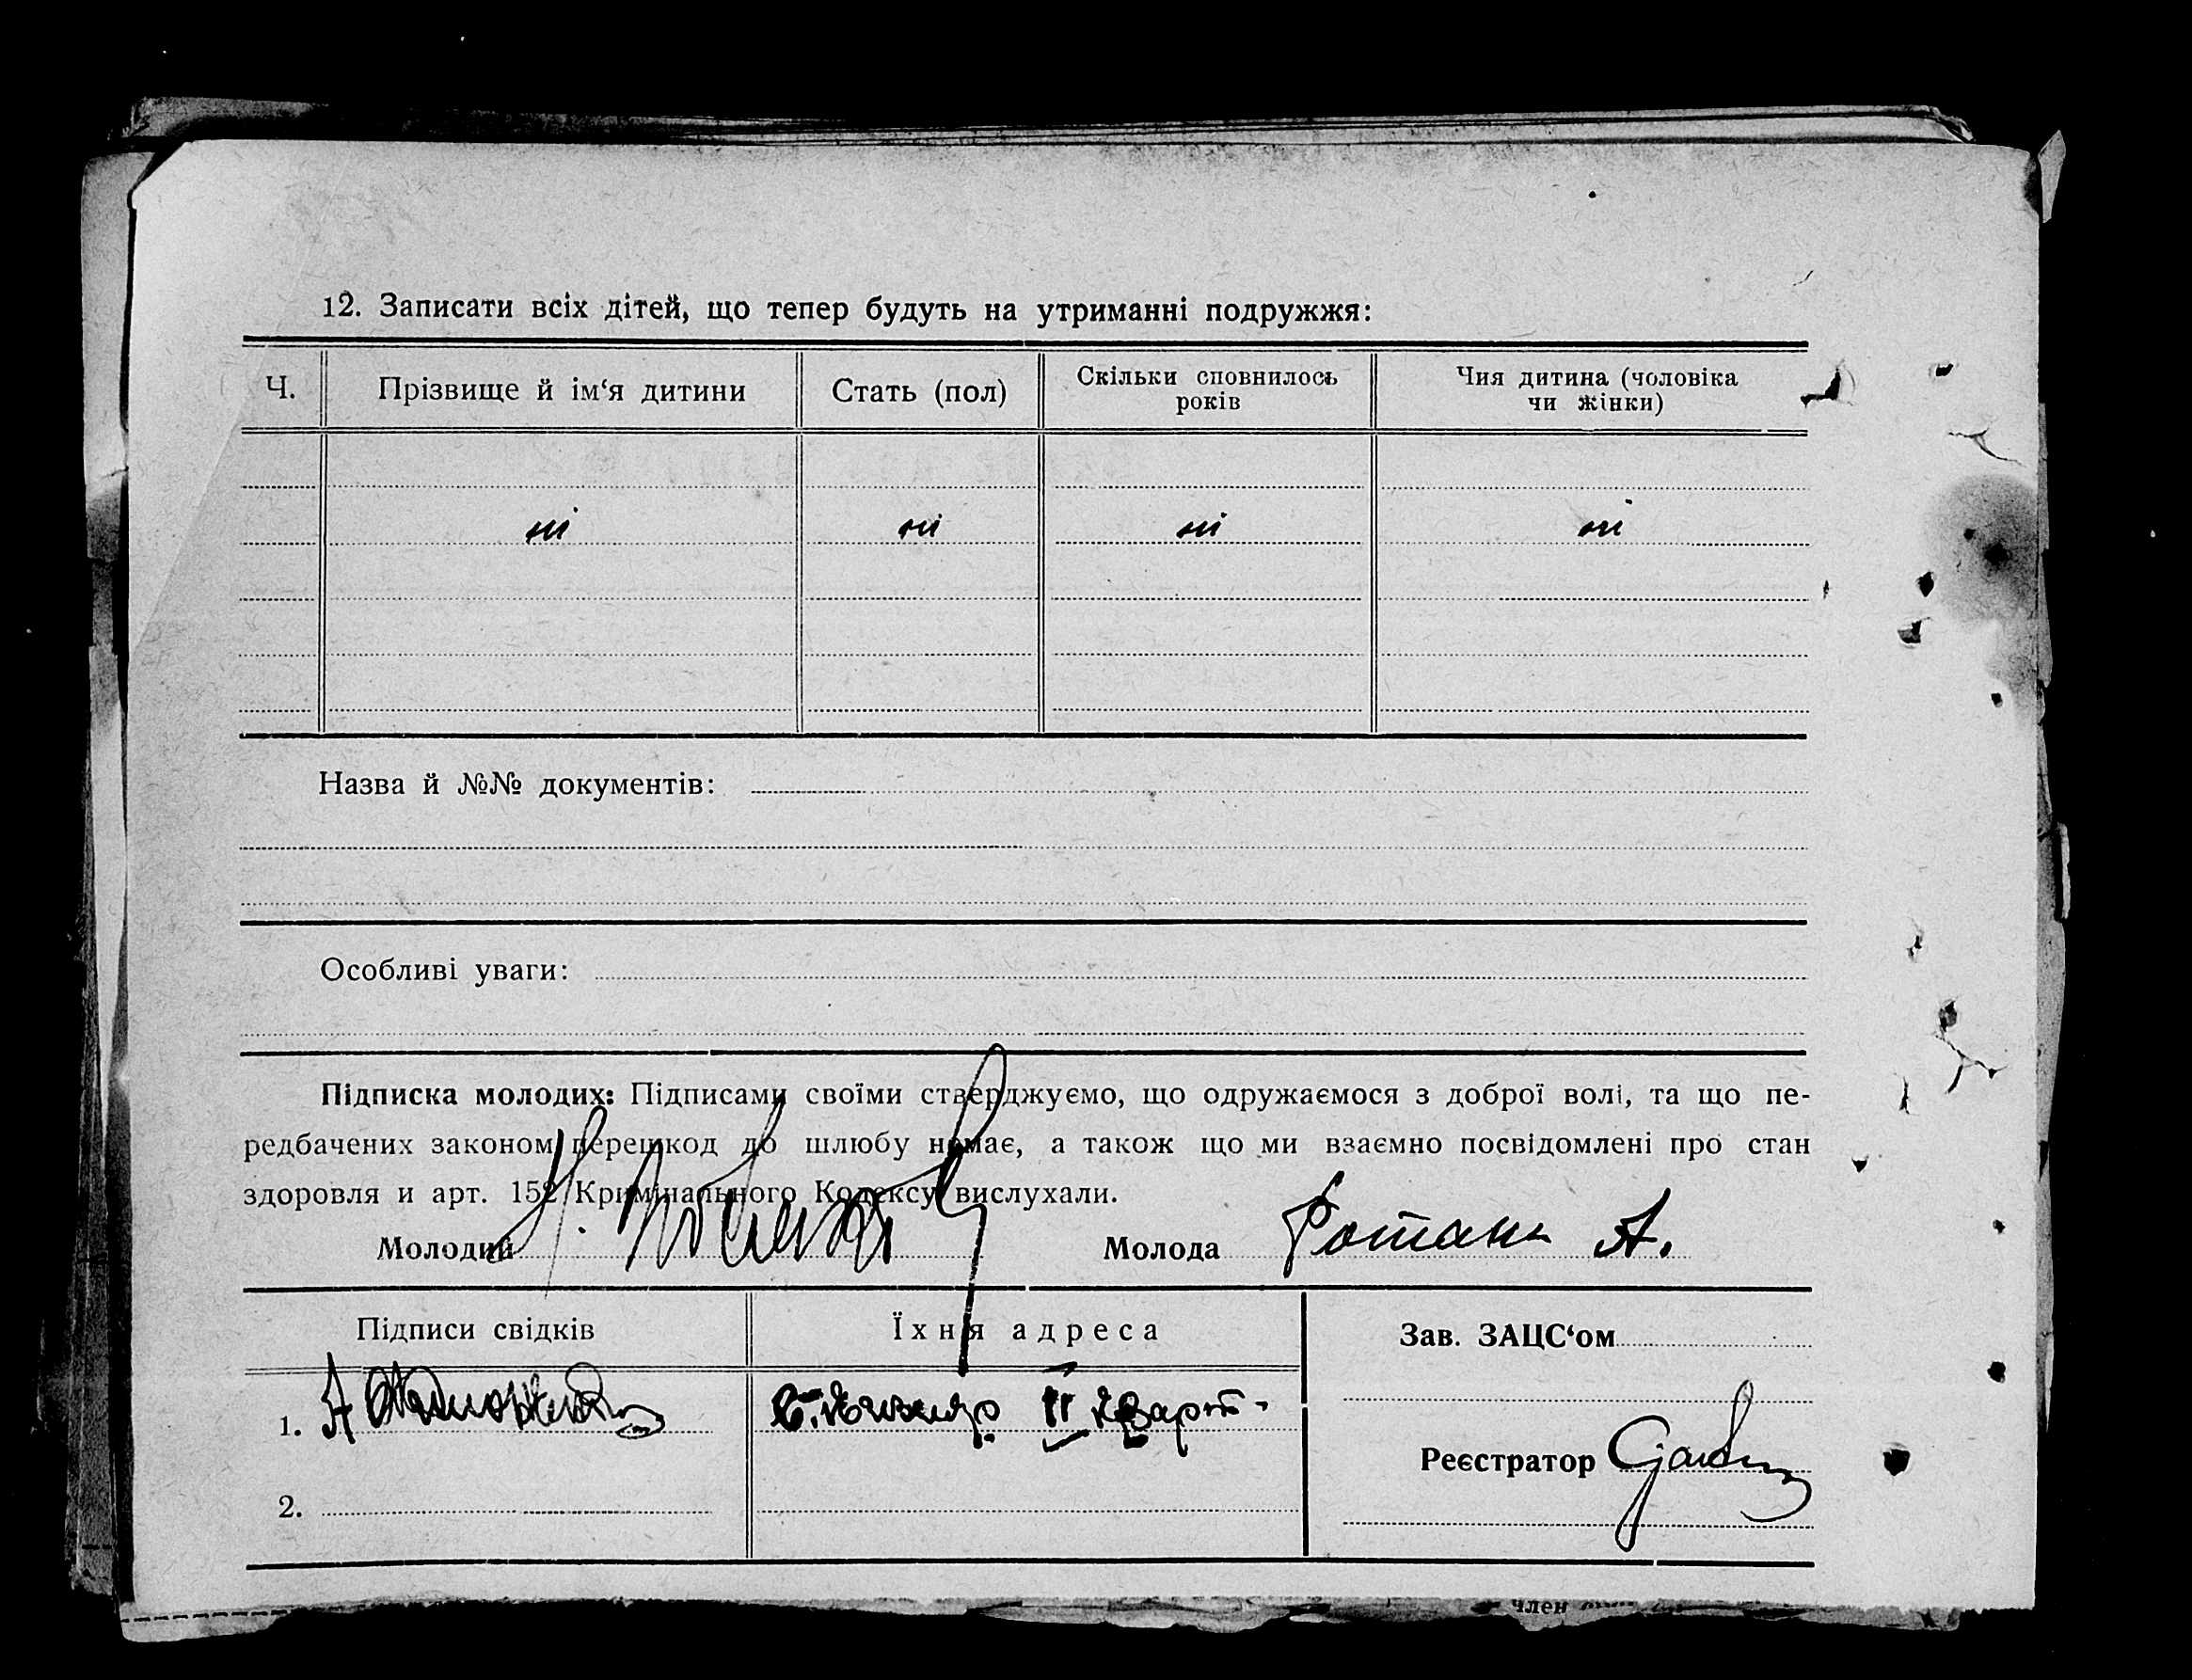 12. Записати всіх дітей, що тепер будуть на утриманні подружжя:
Ч. Прізвище й ім‘я дитини Стать (пол) Скільки сповнилось років Чия дитина (чоловіка чи жінки)
ні ні ні ні
Назва й №№ документів:
Особливі уваги:
Підписка молодих: Підписами своїми стверджуємо, що одружаємося з доброї волі, та що пе-
редбачених законом перешкод до шлюбу немає, а також що ми взаємно посвідомлені про стан
здоровля и арт. 152 Кримінального Кодексу вислухали.
Молодий Молода Ротань А.
Підписи свідків Їхня адреса Зав. ЗАЦС‘ом
1. II кварт.
Реєстратор
2.
член